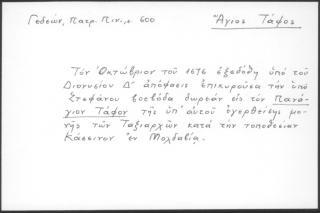 Γεδεών, Πατρ. Πιν., σ. 600
Ἅγιος Τάφος
Τὸν Ὀκτώβριον τοῦ 1676 ἐξεδόθη ὑπὸ τοῦ
Διονυσίου Δ΄ ἀπόφασις ἐπικυροῦσα τὴν ὑπὸ
Στεφάνου βοεβόδα δωρεὰν εἰς τὸν Πανά-
γιον Τάφον τῆς ὑπ' αὐτοῦ ἐγερθείσης μο-
νῆς τῶν Ταξιαρχῶν κατὰ τὴν τοποθεσίαν
Κάσσινον ἐν Μολδαβίᾳ.